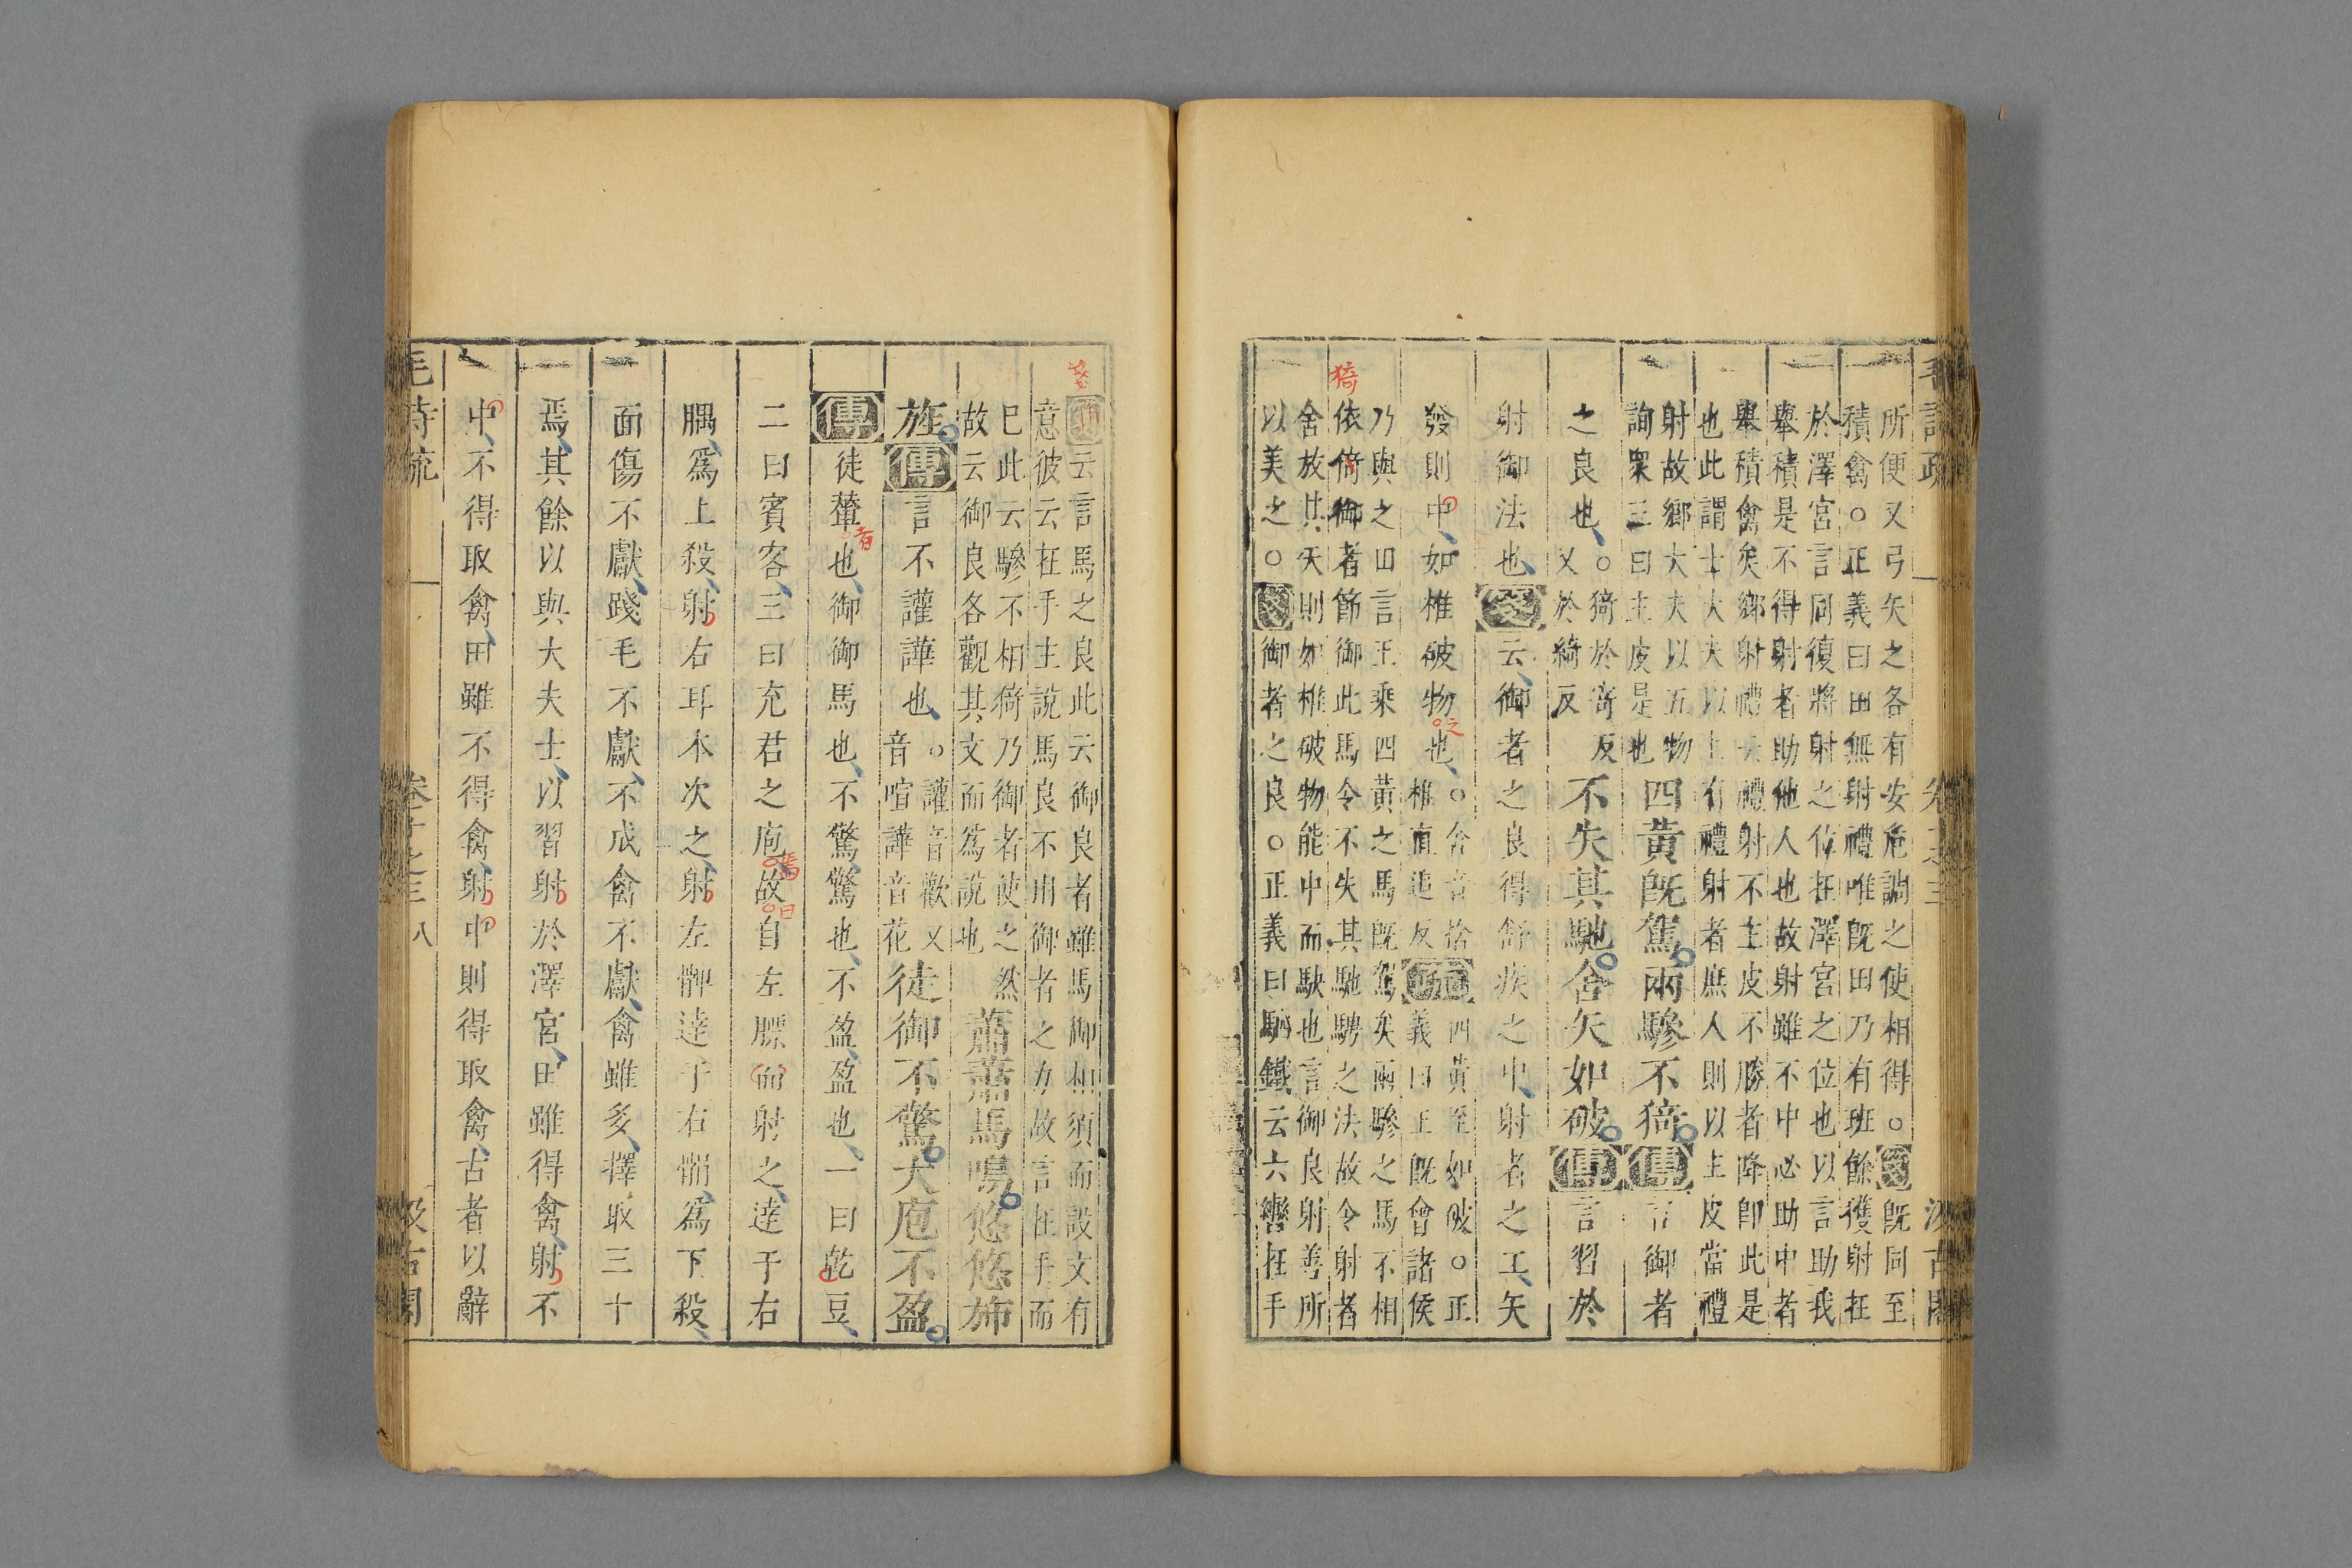 毛詩疏 卷十之三 汲古閣
所便又弓矢之各有安危調之使相得○箋既同至
積禽○正義曰田無射禮唯既田乃有班餘獲射在
於澤宮言同復將射之位在澤宮之位也以言助我
舉積是不得射者助他人也故射雖不中必助中者
舉積禽矣鄉射禮 禮射不主皮不勝者降即此是
也此謂士大夫以上有禮射者庶人則以主皮當禮
射故鄉大夫以五物
詢眾三曰主皮是也
四黃既駕兩驂不猗傳言御者
之良也○猗於寄反
又於綺反
不失其馳舍矢如破傳言習於
射御法也箋云御者之良得舒疾之中射者之工矢
發則中如椎破物也
猗
之
○舍音捨
椎直追反
疏
四黃至如破○正
義曰王既會諸侯
乃與之田言王乘四黃之馬既駕矣兩驂之馬不相
依倚御者節御此馬令不失其馳騁之法故令射者
舍放其矢則如椎破物能中而駃也言御良射善所
以美之○箋御者之良○正義曰駟鐵云六轡在手
箋
云言馬之良此云御良者雖馬御相須而設文有
意彼云在手主說馬良不由御者之力故言在手而
已此云驂不相猗乃御者使之然
故云御良各觀其文而為說也
蕭蕭馬鳴悠悠旆
旌傳言不讙譁也
○讙音歡又
音喧譁音花
徒御不驚大庖不盈
傳徒輦也御御馬也不驚驚也不盈盈也一曰乾豆
者
二曰賓客三曰充君之庖故自左膘而射之達于右
焉
曰
腢為上殺射右耳本次之射左髀達于右䯚為下殺
面傷不獻踐毛不獻不成禽不獻禽雖多擇取三十
焉其餘以與大夫士以習射於澤宮田雖得禽射不
中不得取禽田雖不得禽射中則得取禽古者以辭
毛詩疏 卷十之三 八 汲古閣